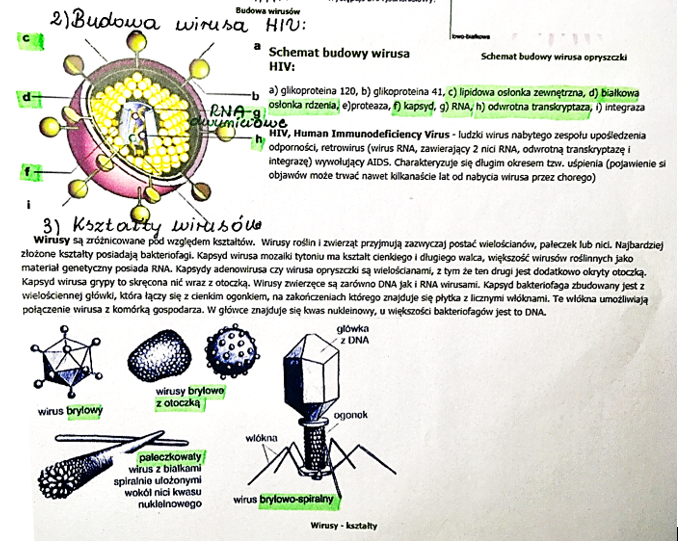 Budowa wirusów
2) Budowa wirusa HIV:
owo-białkowe
c
a
Schemat budowy wirusa
HIV:
Schemat budowy wirusa opryszczki
d
b
a) glikoproteina 120, b) glikoproteina 41, c) lipidowa osłonka zewnętrzna, d) białkowa
osłonka rdzenia, e)proteaza, f) kapsyd, g) RNA, h) odwrotna transkryptaza, i) integraza
RNA g
dwuniciowe
h
HIV, Human Immunodeficiency Virus - ludzki wirus nabytego zespołu upośledzenia
odporności, retrowirus (wirus RNA, zawierający 2 nici RNA, odwrotną transkryptazę i
integrazę) wywołujący AIDS. Charakteryzuje się długim okresem tzw. uśpienia (pojawienie si
objawów może trwać nawet kilkanaście lat od nabycia wirusa przez chorego)
f
i
3) Kształty wirusów
Wirusy są zróżnicowane pod względem kształtów. Wirusy roślin i zwierząt przyjmują zazwyczaj postać wielościanów, pałeczek lub nici. Najbardziej
złożone kształty posiadają bakteriofagi. Kapsyd wirusa mozaiki tytoniu ma kształt cienkiego i długiego walca, większość wirusów roślinnych jako
materiał genetyczny posiada RNA. Kapsydy adenowirusa czy wirusa opryszczki są wielościanami, z tym że ten drugi jest dodatkowo okryty otoczką.
Kapsyd wirusa grypy to skręcona nić wraz z otoczką. Wirusy zwierzęce są zarówno DNA jak i RNA wirusami. Kapsyd bakteriofaga zbudowany jest z
wielościennej główki, która łączy się z cienkim ogonkiem, na zakończeniach którego znajduje się płytka z licznymi włóknami. Te włókna umożliwiają
połączenie wirusa z komórką gospodarza. W główce znajduje się kwas nukleinowy, u większości bakteriofagów jest to DNA.
główka
z DNA
wirusy bryłowe
z otoczką
wirus bryłowy
ogonek
włókna
pałeczkowaty
wirus z białkami
spiralnie ułożonymi
wokół nici kwasu
nukleinowego
wirus bryłowo-spiralny
Wirusy - kształty